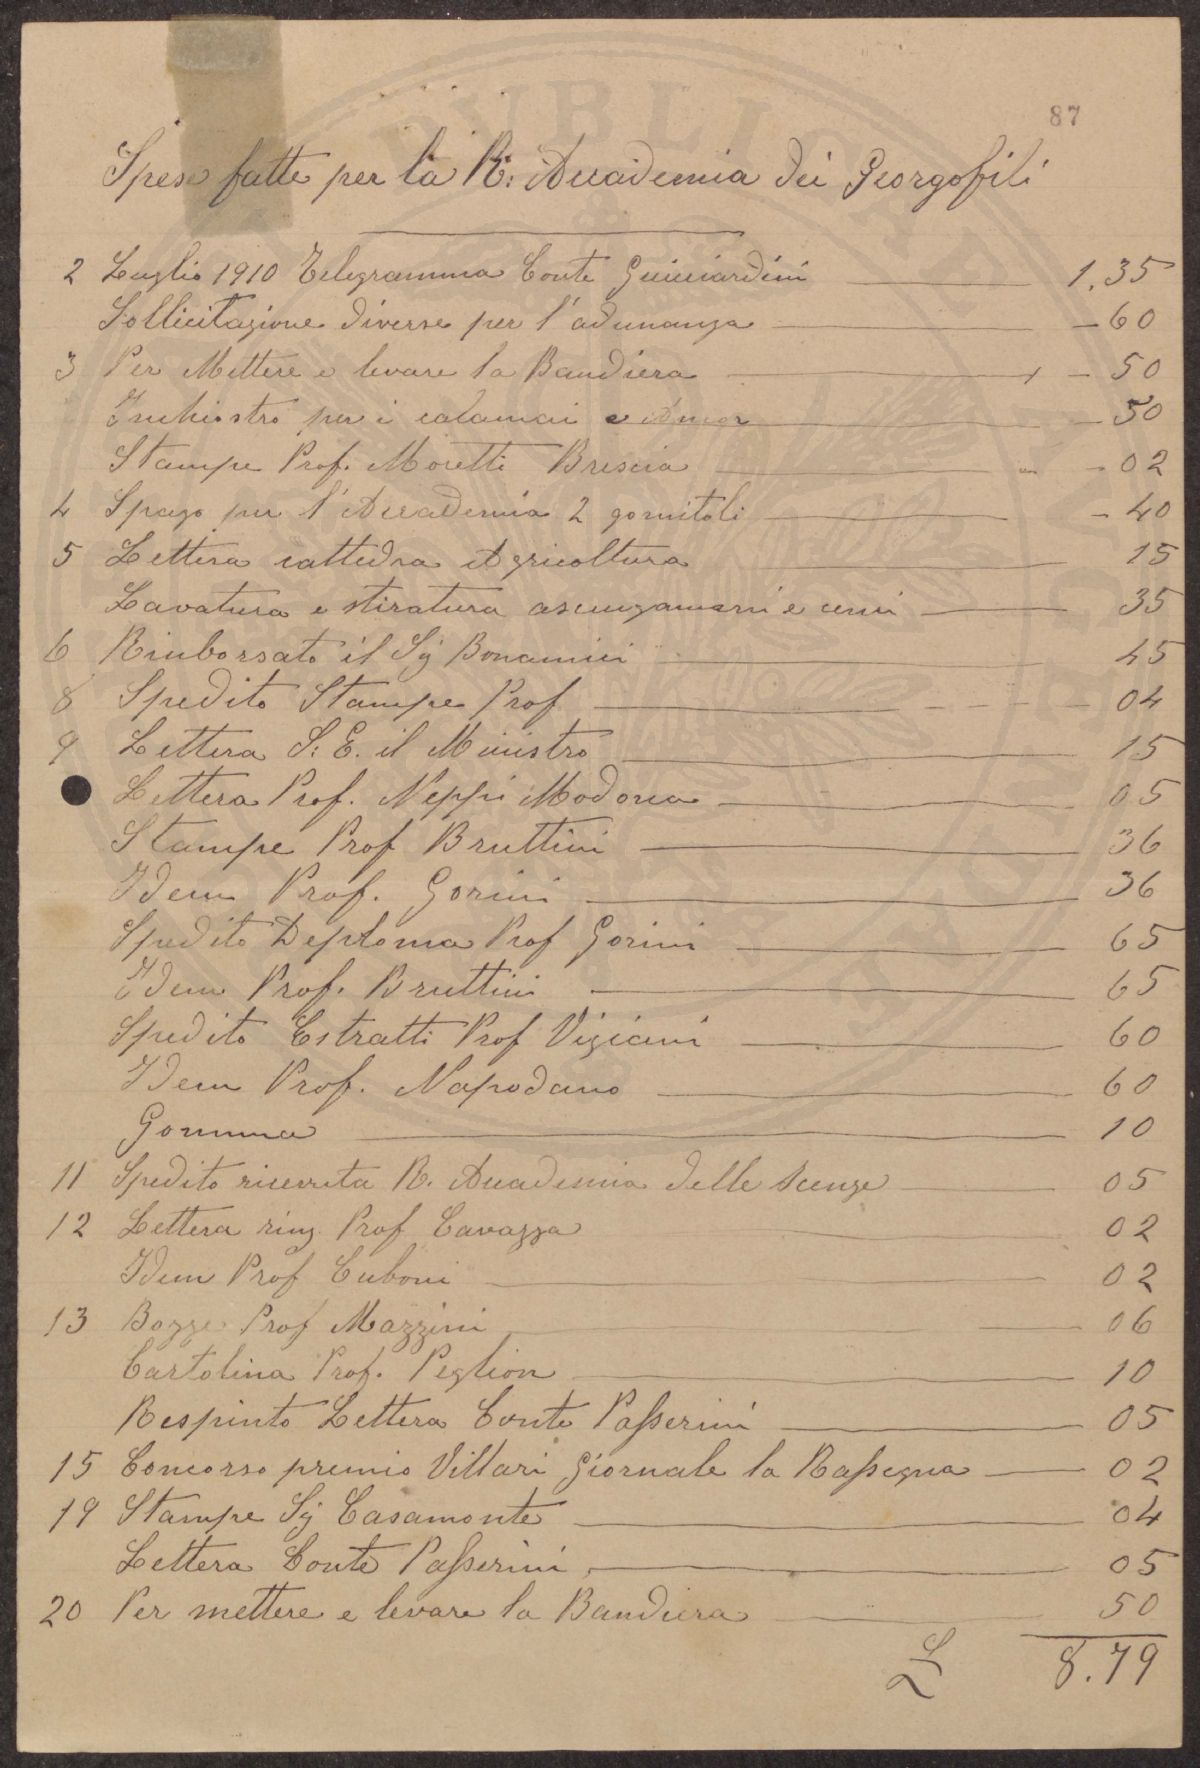 87
Spese fatte per la R. Accademia dei Georgofili
2 Luglio 1910 Telegramma Conte Guicciardini 1.35
Sollicitazione diverse per l'adunanza 60
3 Per Mettere e levare la Bandiera 50
Inchiostro per i calamai e 50
Stampe Prof. Moretti Brescia 02
4 Spago per l'Accademia 2 gomitoli 40
5 Lettera cattedra Agricoltura 15
Lavatura e stiratura asciugamani e cenci 35
6 Rimborsato il Sg Bonamici 45
8 Spedito Stampe Prof 04
9 Lettera S. E. il Ministro 15
Lettera Prof. Neppi Modona 05
Stampe Prof Bruttini 36
Idem Prof. Gorini 36
Spedito Deploma Prof Gorini 65
Idem Prof. Bruttini 65
Spedito Estratti Prof Vigiani 60
Idem Prof. Napodano 60
Gomma 10
11 Spedito ricevuta R. Accademia delle Scenze 05
12 Lettera ring. Prof Cavazza 02
Idem Prof Cuboni 02
13 Bozze Prof Mazzini 06
Cartolina Prof. Peglion 10
Respinto Lettera Conte Passerini 05
15 Concorso premio Villari Giornale la Rassegna 02
19 Stampe Sg Casamonte 04
Lettera Conte Passerini 05
20 Per mettere e levare la Bandiera 50
£ 8.79